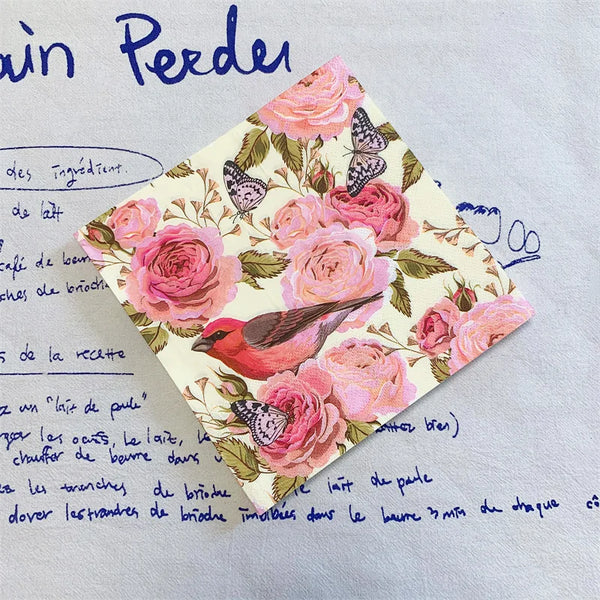 ain Perdu
des ingrédient.
de lait
café de beur
ches de brioche
s de la recette
un "lait de poule"
les oeufs, Le lait, L
bien)
chauffer de beurre dans
les tranches de brioche le lait de poule
dorer les trandres de brioche imbibées dans le beurre 3 min de chaque cô